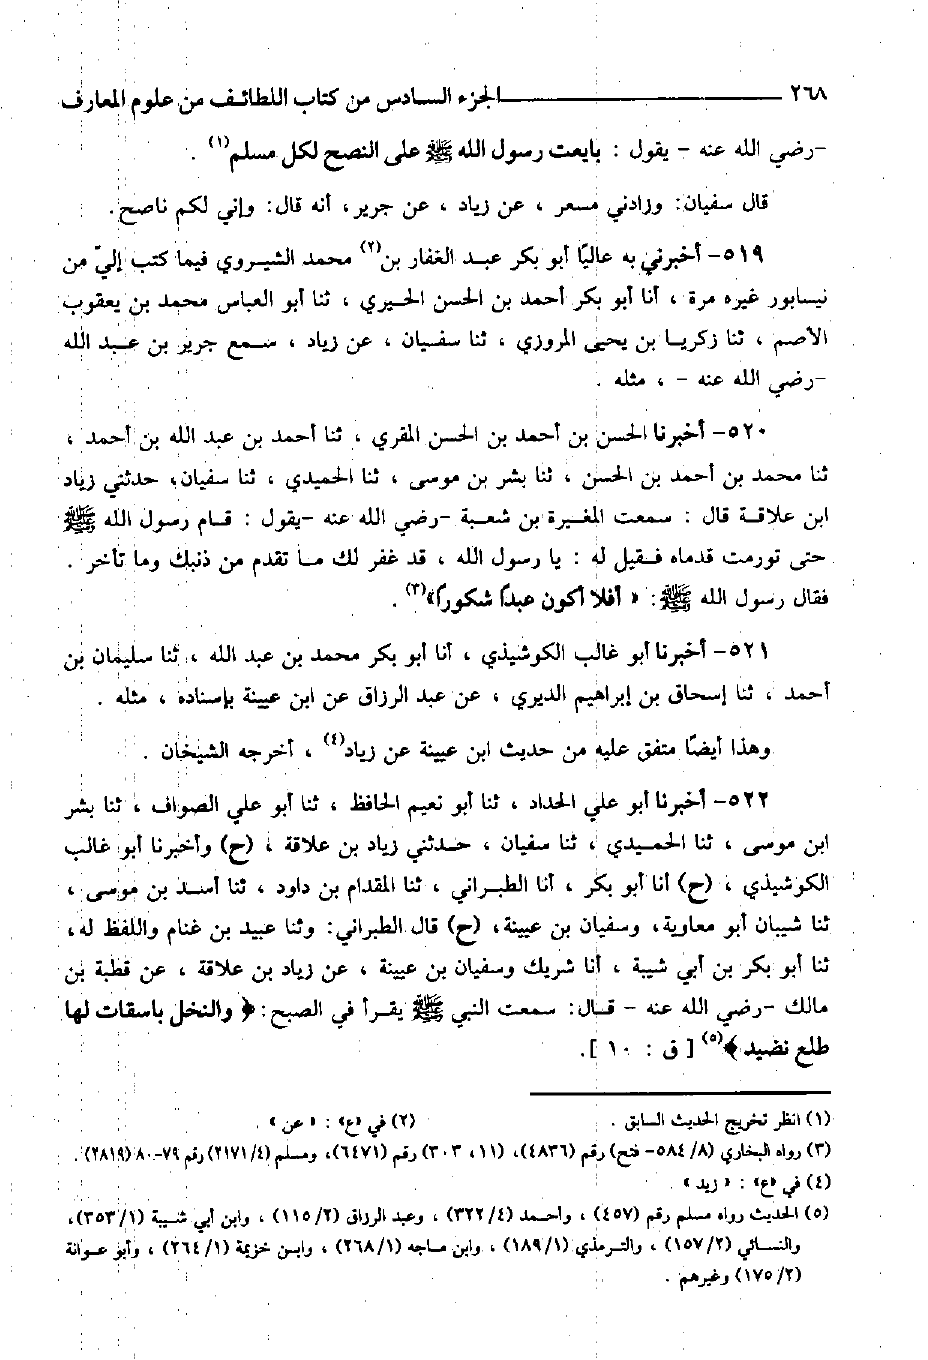 ٢٦٨ الجزء السادس من كتاب اللطائف من علوم المعارف
-رضي الله عنه - يقول : بايعت رسول الله ﷺ على النصح لكل مسلم(١) .
قال سفيان: وزادني مسعر ، عن زياد ، عن جرير، أنه قال: وإني لكم ناصح.
٥١٩- أخبرني به عاليًا أبو بكر عبد الغفار بن(٢) محمد الشيروي فيما كتب إليّ من
نيسابور غيره مرة ، أنا أبو بكر أحمد بن الحسن الحيري ، ثنا أبو العباس محمد بن يعقوب
الأصم ، ثنا زكريا بن يحيى المروزي ، ثنا سفيان ، عن زياد ، سمع جرير بن عبد الله
-رضي الله عنه - ، مثله .
٥٢٠- أخبرنا الحسن بن أحمد بن الحسن المقري ، ثنا أحمد بن عبد الله بن أحمد ،
ثنا محمد بن أحمد بن الحسن ، ثنا بشر بن موسى ، ثنا الحميدي ، ثنا سفيان، حدثني زياد
ابن علاقة قال : سمعت المغيرة بن شعبة -رضي الله عنه -يقول : قام رسول الله ﷺ
حتى تورمت قدماه فقيل له : يا رسول الله ، قد غفر لك ما تقدم من ذنبك وما تأخر .
فقال رسول الله ﷺ: « أفلا أكون عبدًا شكورًا»(٣) .
٥٢١- أخبرنا أبو غالب الكوشيذي ، أنا أبو بكر محمد بن عبد الله ، ثنا سليمان بن
أحمد ، ثنا إسحاق بن إبراهيم الديري ، عن عبد الرزاق عن ابن عيينة بإسناده ، مثله .
وهذا أيضًا متفق عليه من حديث ابن عيينة عن زياد(٤) ، أخرجه الشيخان .
٥٢٢- أخبرنا أبو علي الحداد ، ثنا أبو نعيم الحافظ ، ثنا أبو علي الصواف ، ثنا بشر
ابن موسى ، ثنا الحميدي ، ثنا سفيان ، حدثني زياد بن علاقة ، (ح) وأخبرنا أبو غالب
الكوشيذي ، (ح) أنا أبو بكر ، أنا الطبراني ، ثنا المقدام بن داود ، ثنا أسد بن موسى ،
ثنا شيبان أبو معاوية، وسفيان بن عيينة، (ح) قال الطبراني: وثنا عبيد بن غنام واللفظ له،
ثنا أبو بكر بن أبي شيبة ، أنا شريك وسفيان بن عيينة ، عن زياد بن علاقة ، عن قطبة بن
مالك -رضي الله عنه - قال: سمعت النبي ﷺ يقرأ في الصبح: ﴿ والنخل باسقات لها
طلع نضيد ﴾(٥) [ ق : ١٠ ].
(١) انظر تخريج الحديث السابق . (٢) في «ع» : « عن » .
(٣) رواه البخاري (٨/ ٥٨٤- فتح) رقم (٤٨٣٦)، (١١، ٣٠٣) رقم (٦٤٧١)، ومسلم (٢١٧١/٤) رقم ٧٩-٨٠ (٢٨١٩) .
(٤) في «ع» : « زيد » .
(٥) الحديث رواه مسلم رقم (٤٥٧) ، وأحمد (٣٢٢/٤) ، وعبد الرزاق (١١٥/٢) ، وابن أبي شيبة (٣٥٣/١)،
والنسائي (١٥٧/٢) ، والترمذي (١٨٩/١) ، وابن ماجه (٢٦٨/١) ، وابن خزيمة (٢٦٤/١) ، وأبو عوانة
(١٧٥/٢) وغيرهم .